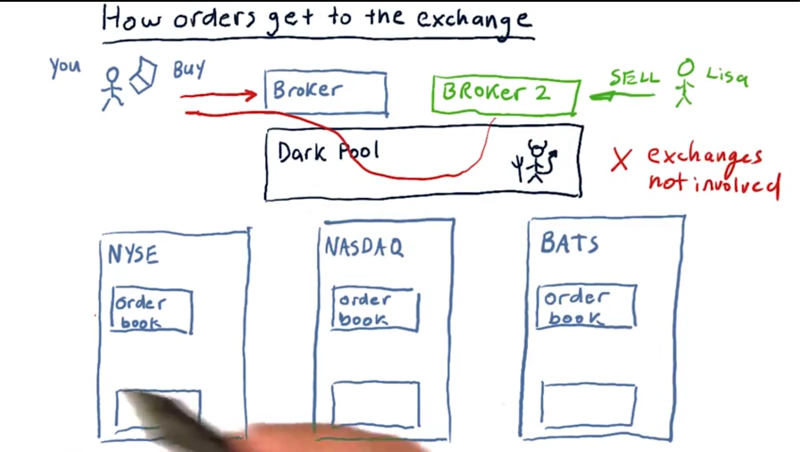 How orders get to the exchange
You
BUY
Broker
BROKER 2
SELL
Lisa
Dark Pool
X exchanges
not involved
NYSE
order
book
NASDAQ
order
book
BATS
order
book